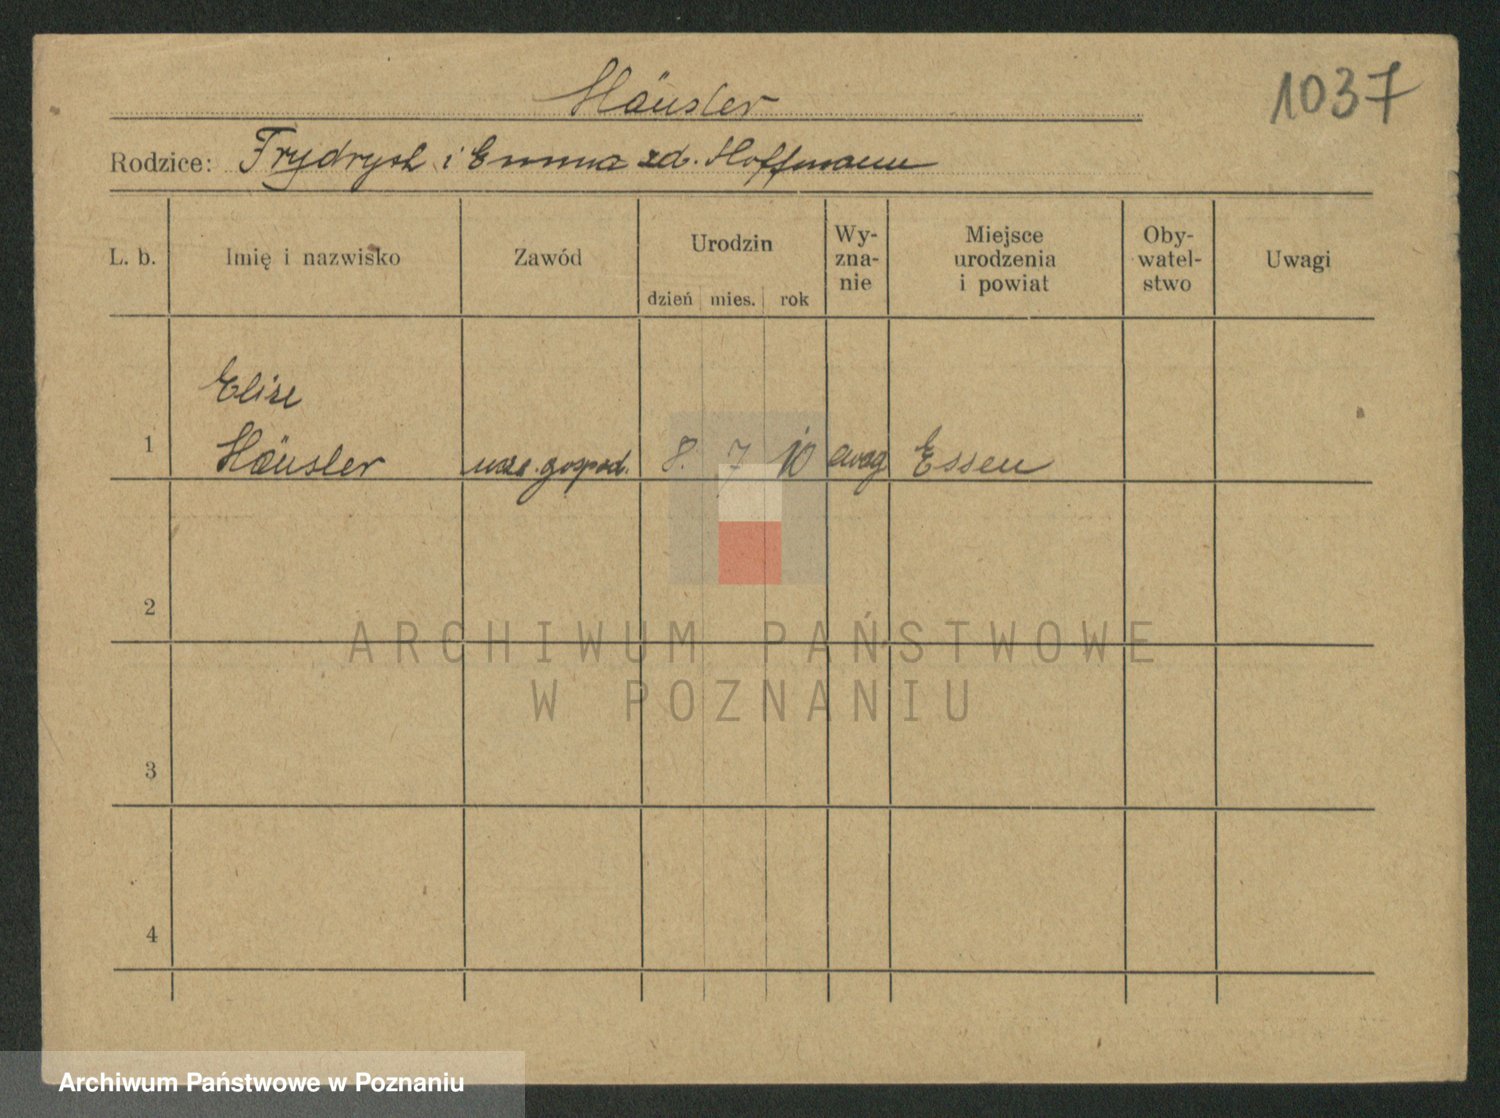 Häusler
1037
Rodzice: Frydrych i Emma zd. Hoffmann
L. b. Imię i nazwisko Zawód Urodzin dzień mies. rok Wy-zna-nie Miejsce urodzenia i powiat Oby-watel-stwo Uwagi
Elise
1 Häusler naucz. gospod. 8. 7 10 ewag Essen
2
ARCHIWUM PAŃSTWOWE
W POZNANIU
3
4
Archiwum Państwowe w Poznaniu